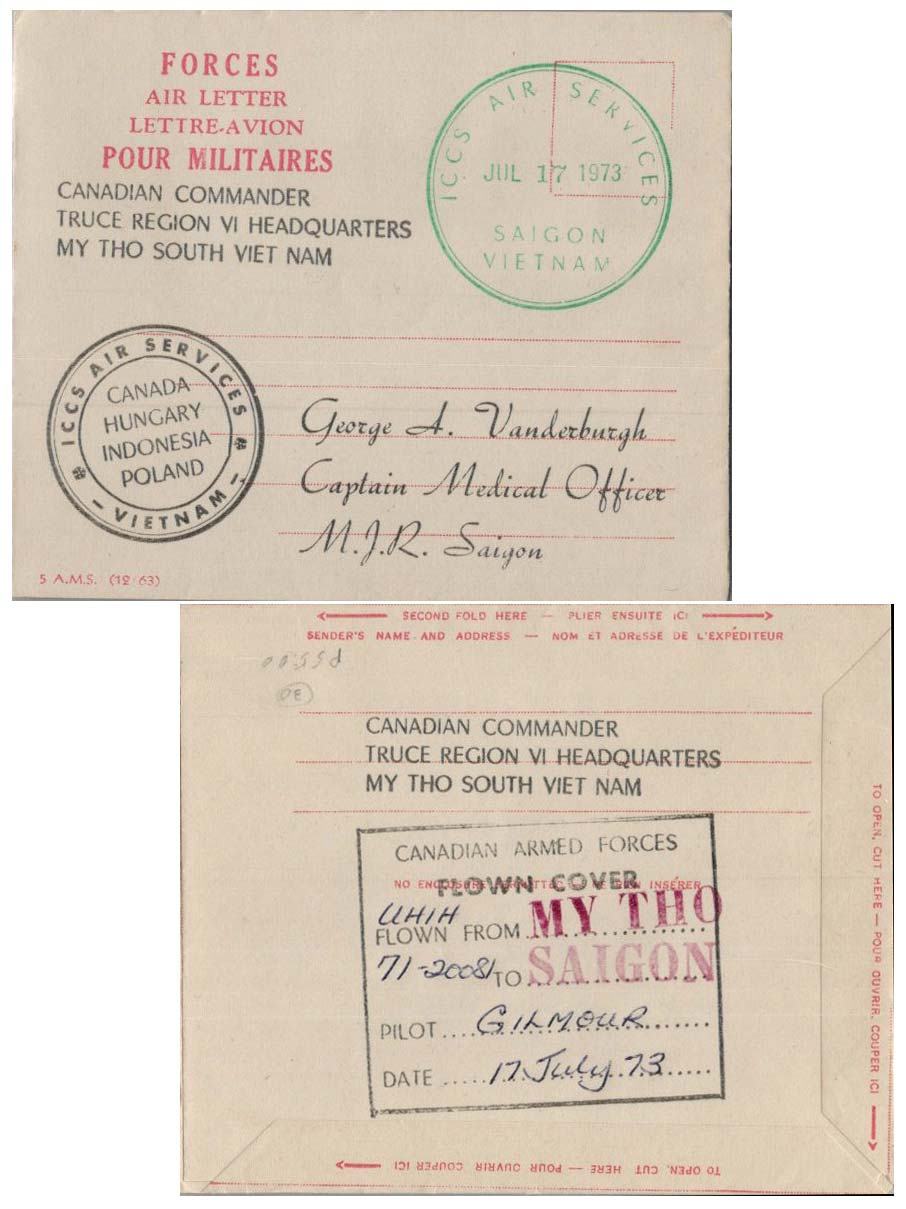 FORCES
AIR LETTER
LETTRE-AVION
POUR MILITAIRES
CANADIAN COMMANDER
TRUCE REGION VI HEADQUARTERS
MY THO SOUTH VIET NAM
ICCS AIR SERVICES
JUL 17 1973
SAIGON
VIETNAM
ICCS AIR SERVICES
CANADA
HUNGARY
INDONESIA
POLAND
- VIETNAM -
George A. Vanderburgh
Captain Medical Officer
M.J.R. Saigon
5 A.M.S. (12/63)
SECOND FOLD HERE — PLIER ENSUITE ICI
SENDER'S NAME AND ADDRESS — NOM ET ADRESSE DE L'EXPÉDITEUR
CANADIAN COMMANDER
TRUCE REGION VI HEADQUARTERS
MY THO SOUTH VIET NAM
CANADIAN ARMED FORCES
FLOWN COVER
NO ENCLOSURE INSÉRER
UH1H
FLOWN FROM MY THO
71-20081 TO SAIGON
PILOT .... GILMOUR
DATE ..... 17 July 73
TO OPEN, CUT HERE — POUR OUVRIR, COUPER ICI
TO OPEN, CUT HERE — POUR OUVRIR COUPER ICI